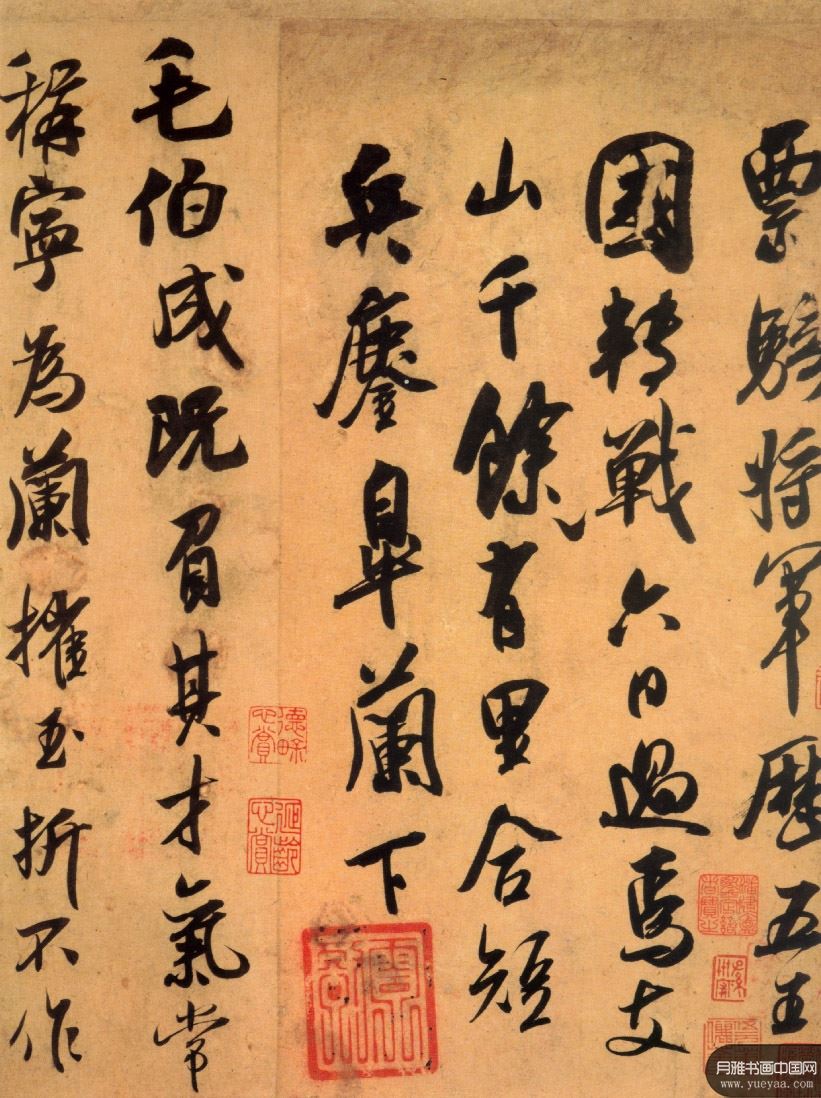 票騎將軍歷五王
國轉戰六日過焉支
山千餘有里合短
兵鏖皋蘭下
毛伯成既負其才氣常
稱寧為蘭摧玉折不作
德畬心賞
延齡心賞
月雅书画中国网
www.yueyaa.com